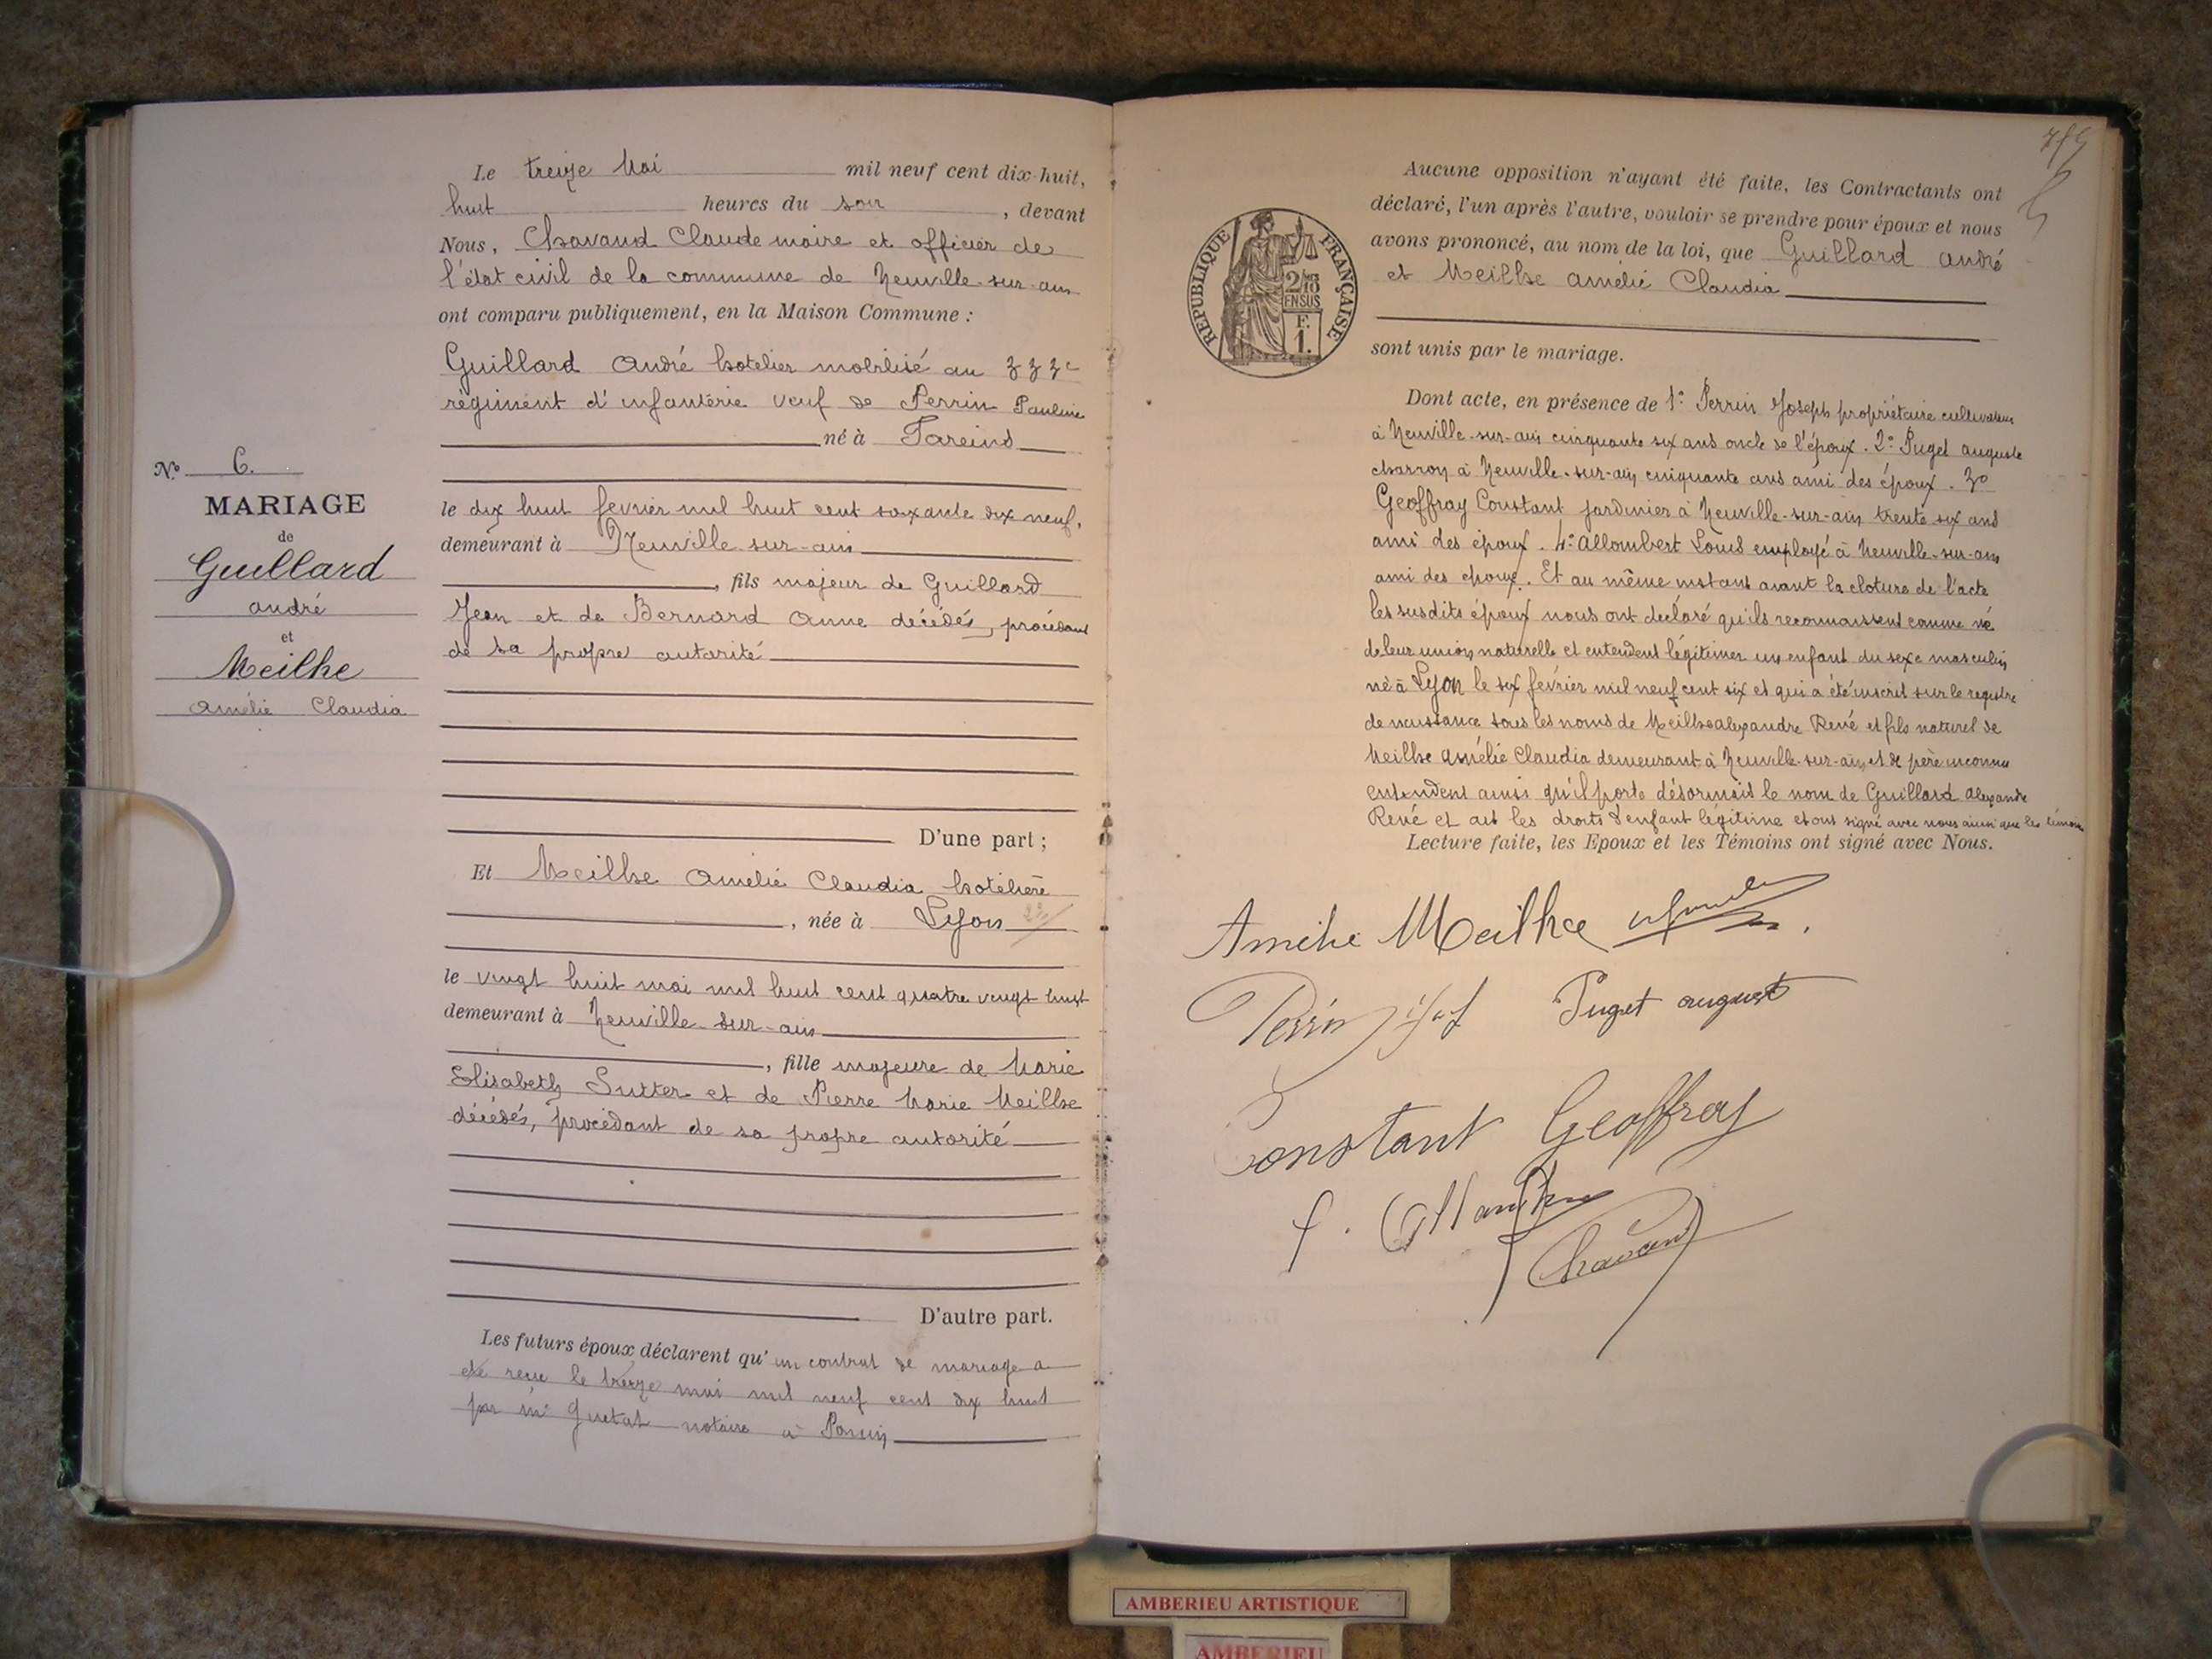 Le treize Mai mil neuf cent dix-huit,
huit heures du soir, devant
Nous, Chavand Claude maire et officier de
l'état civil de la commune de Neuville-sur-ain
ont comparu publiquement, en la Maison Commune :
Guillard André hotelier mobilisé au 333e
régiment d'infanterie veuf de Perrin Pauline
né à Fareins
N° 6.
MARIAGE
de
Guillard
andré
et
Meilhe
Amélie Claudia
le dix huit fevrier mil huit cent soixante dix neuf,
demeurant à Neuville-sur-ain
, fils majeur de Guillard
Jean et de Bernard Anne décédés, procédant
de sa propre autorité
D'une part ;
Et Meilhe Amélie Claudia hotelière
, née à Lyon
le vingt huit mai mil huit cent quatre vingt huit
demeurant à Neuville-sur-ain
, fille majeure de Marie
Elisabeth Sutter et de Pierre Marie Meilhe
décédés, procédant de sa propre autorité
D'autre part.
Les futurs époux déclarent qu'un contrat de mariage a
été recu le treize mai mil neuf cent dix huit
par me Guetat notaire à Poncin
Aucune opposition n'ayant été faite, les Contractants ont
déclaré, l'un après l'autre, vouloir se prendre pour époux et nous
avons prononcé, au nom de la loi, que Guillard André
et Meilhe Amélie Claudia
REPUBLIQUE FRANÇAISE
2/10
EN SUS
F.
1.
sont unis par le mariage.
Dont acte, en présence de 1° Perrin Joseph propriétaire cultivateur
à Neuville-sur-ain cinquante six ans oncle de l'époux. 2° Puget auguste
charron à Neuville-sur-ain cinquante ans ami des époux. 3°
Geoffray Constant jardinier à Neuville-sur-ain trente six ans
ami des époux. 4° Allombert Louis employé à Neuville-sur-ain
ami des époux. Et au même instant avant la cloture de l'acte
les susdits époux nous ont declaré qu'ils reconnaissent comme né
de leur union naturelle et entendent légitimer un enfant du sexe masculin
né à Lyon le six février mil neuf cent six et qui a été inscrit sur le registre
de naissance sous les noms de Meilhe Alexandre René et fils naturel de
Meilhe Amélie Claudia demeurant à Neuville-sur-ain et de père inconnu
entendent ainsi qu'il porte désormais le nom de Guillard Alexandre
René et ait les droits d'enfant légitime et ont signé avec nous ainsi que les témoins
Lecture faite, les Epoux et les Témoins ont signé avec Nous.
Amélie Meilhe
Perrin Puget august
Constant Geoffray
Chavand
AMBERIEU ARTISTIQUE
AMBERIEU